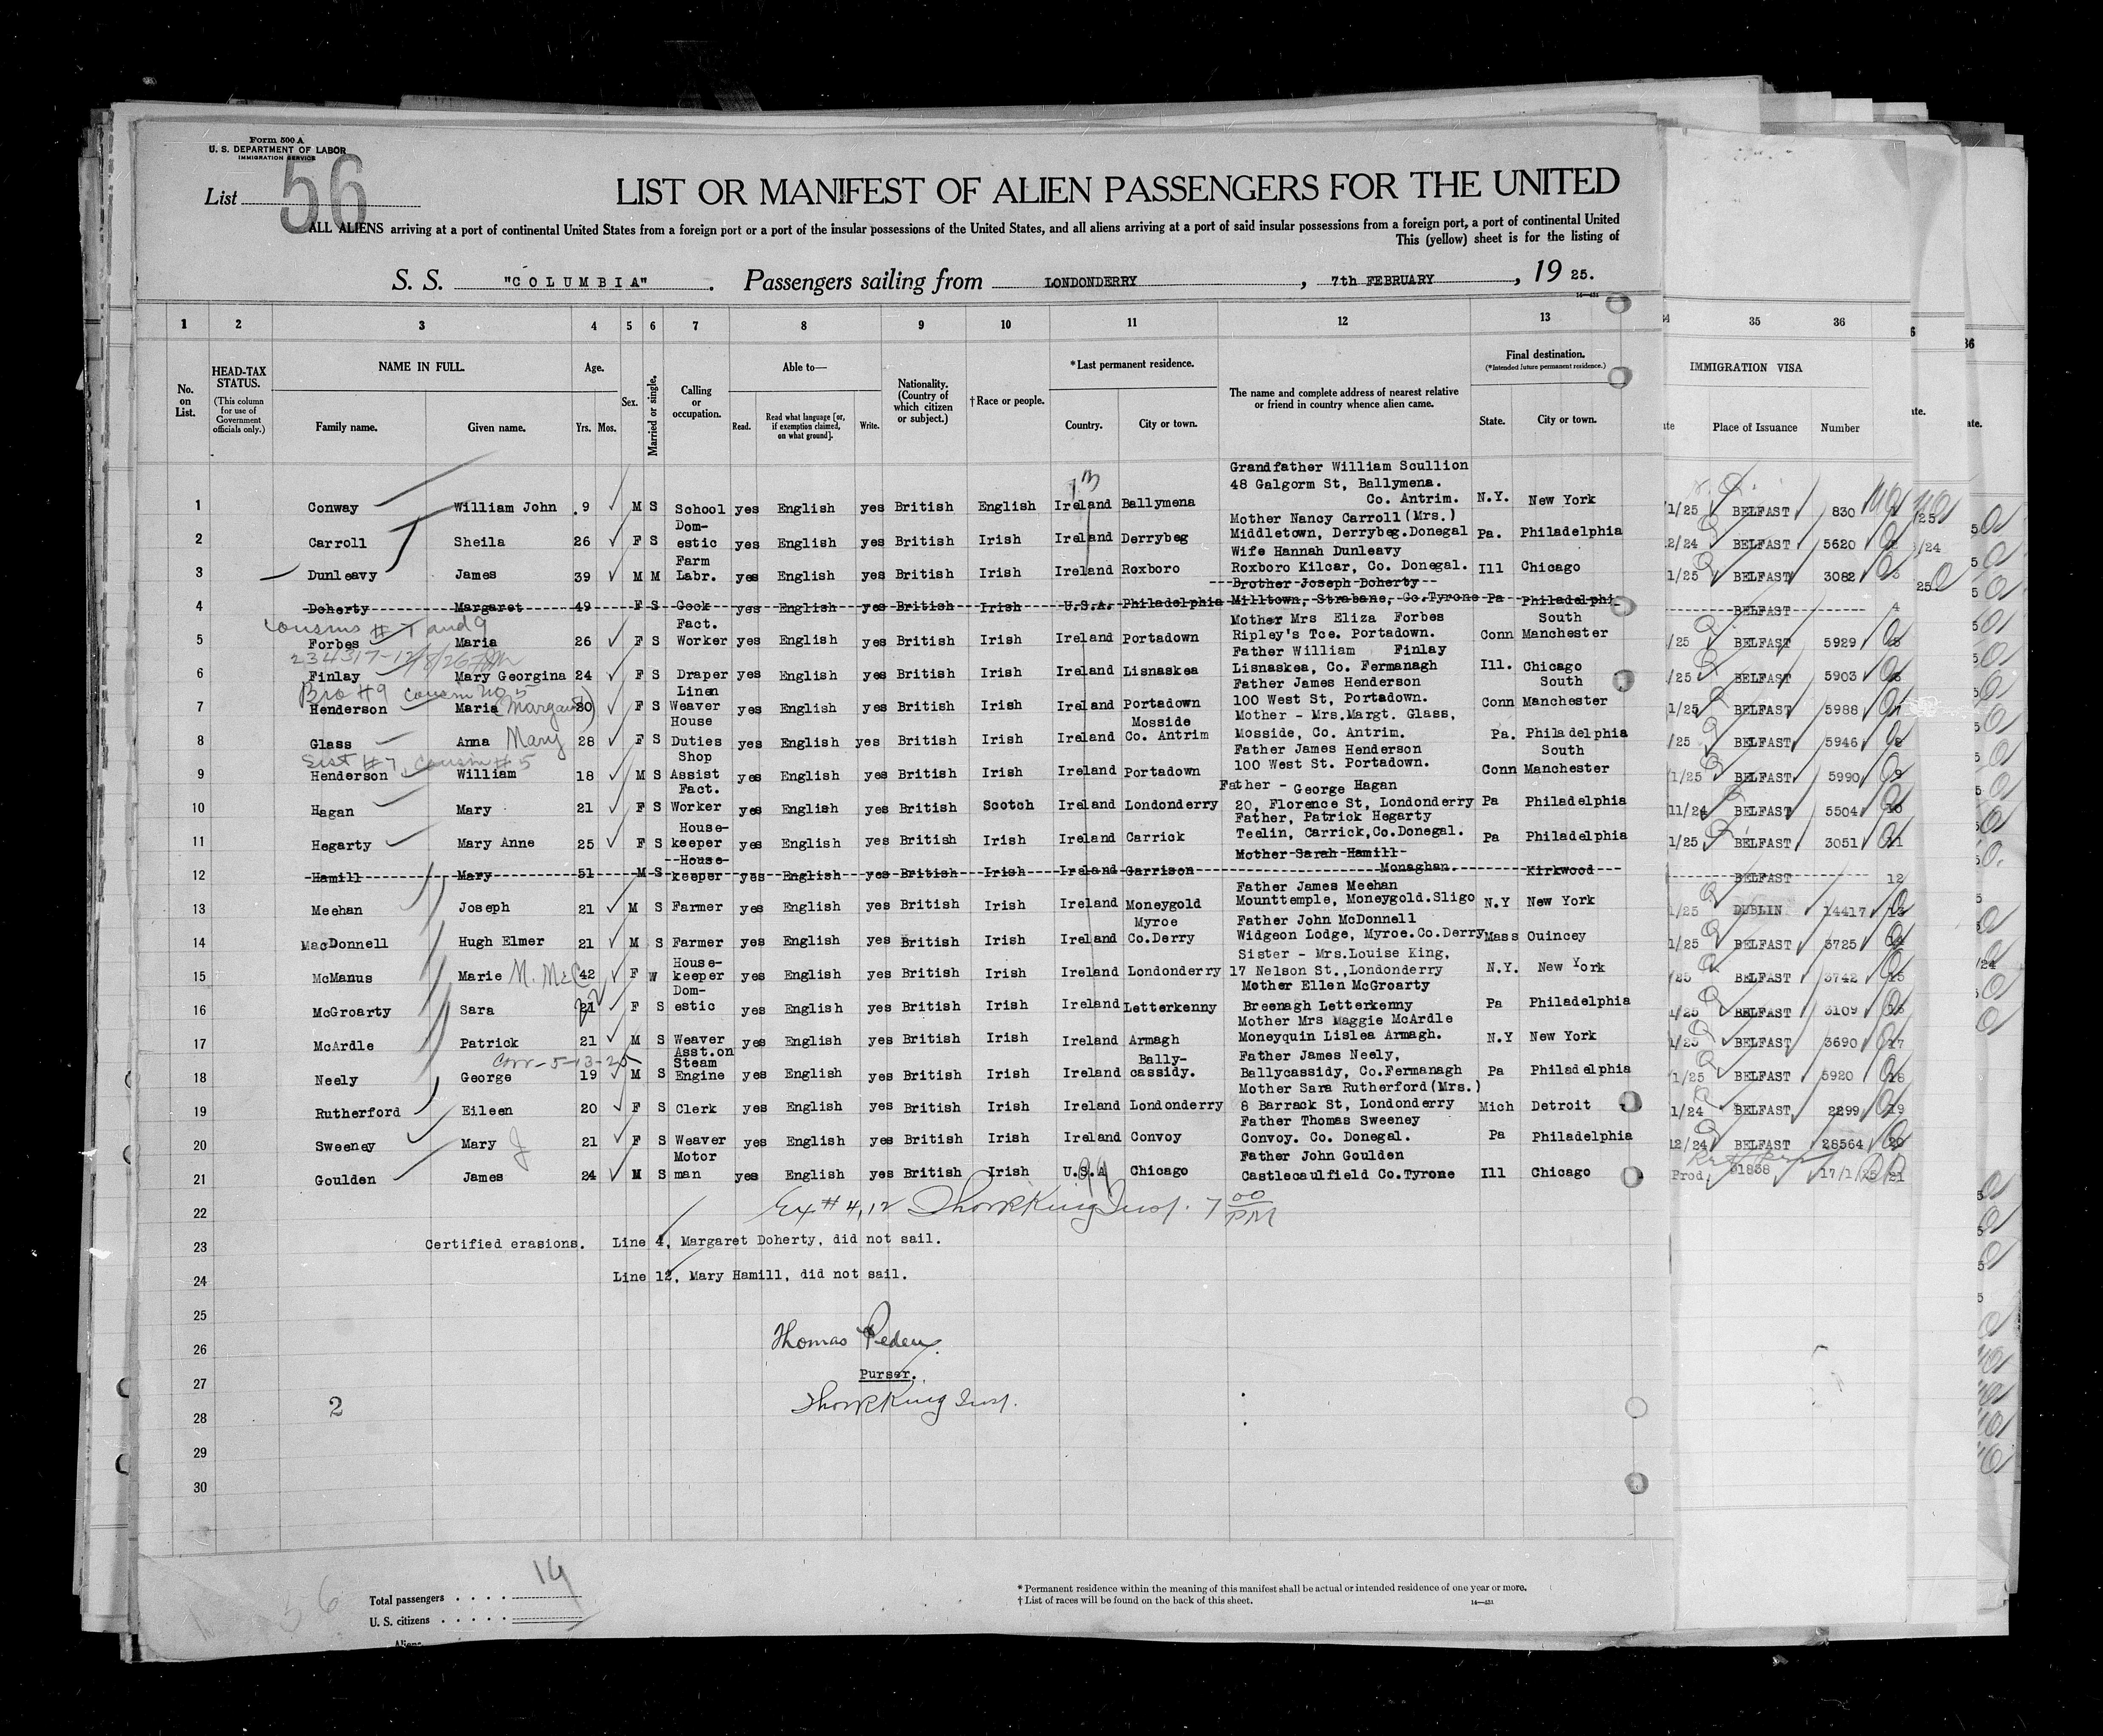 Form 500 A
U. S. DEPARTMENT OF LABOR
IMMIGRATION SERVICE
List 56
LIST OR MANIFEST OF ALIEN PASSENGERS FOR THE UNITED
ALL ALIENS arriving at a port of continental United States from a foreign port or a port of the insular possessions of the United States, and all aliens arriving at a port of said insular possessions from a foreign port, a port of continental United
This (yellow) sheet is for the listing of
S. S. "COLUMBIA" . Passengers sailing from LONDONDERRY , 7th FEBRUARY , 19 25.
14—451
1 2 3 4 5 6 7 8 9 10 11 12 13 34 35 36
No. on List.
HEAD-TAX STATUS.
(This column for use of Government officials only.)
NAME IN FULL.
Family name. Given name.
Age.
Yrs. Mos.
Sex.
Married or single.
Calling or occupation.
Able to—
Read. Read what language [or, if exemption claimed, on what ground]. Write.
Nationality. (Country of which citizen or subject.)
†Race or people.
*Last permanent residence.
Country. City or town.
The name and complete address of nearest relative or friend in country whence alien came.
Final destination.
(*Intended future permanent residence.)
State. City or town.
IMMIGRATION VISA
Place of Issuance Number
13
Grandfather William Scullion
48 Galgorm St, Ballymena.
1 Conway William John 9 M S School yes English yes British English Ireland Ballymena Co. Antrim. N.Y. New York 1/25 BELFAST 830
Dom- Mother Nancy Carroll(Mrs.)
2 Carroll Sheila 26 F S estic yes English yes British Irish Ireland Derrybeg Middletown, Derrybeg.Donegal Pa. Philadelphia 2/24 BELFAST 5620
Farm Wife Hannah Dunleavy
3 Dunleavy James 39 M M Labr. yes English yes British Irish Ireland Roxboro Roxboro Kilcar, Co. Donegal. Ill Chicago 1/25 BELFAST 3082 3
Brother Joseph Doherty
4 Doherty Margaret 49 F S Cook yes English yes British Irish U.S.A. Philadelphia Milltown, Strabane, Co.Tyrone Pa Philadelphi BELFAST 4
Cousins # 7 and 9 Fact. Mother Mrs Eliza Forbes South
5 Forbes Maria 26 F S Worker yes English yes British Irish Ireland Portadown Ripley's Tce. Portadown. Conn Manchester /25 BELFAST 5929 5
234317-12/8/26 Father William Finlay
6 Finlay Mary Georgina 24 F S Draper yes English yes British Irish Ireland Lisnaskea Lisnaskea, Co. Fermanagh Ill. Chicago /25 BELFAST 5903 6
Bro #9 Cousin No 5 Linen Father James Henderson South
7 Henderson Maria (Margaret) 20 F S Weaver yes English yes British Irish Ireland Portadown 100 West St, Portadown. Conn Manchester 1/25 BELFAST 5988 7
House Mosside Mother - Mrs.Margt. Glass,
8 Glass Anna Mary 28 F S Duties yes English yes British Irish Ireland Co. Antrim Mosside, Co. Antrim. Pa. Philadelphia /25 BELFAST 5946 8
Sist #7, cousin #5 Shop Father James Henderson South
9 Henderson William 18 M S Assist yes English yes British Irish Ireland Portadown 100 West St. Portadown. Conn Manchester 1/25 BELFAST 5990 9
Fact. Father - George Hagan
10 Hagan Mary 21 F S Worker yes English yes British Scotch Ireland Londonderry 20, Florence St, Londonderry Pa Philadelphia 11/24 BELFAST 5504 10
House- Father, Patrick Hegarty
11 Hegarty Mary Anne 25 F S keeper yes English yes British Irish Ireland Carrick Teelin, Carrick,Co.Donegal. Pa Philadelphia 1/25 BELFAST 3051 11
House- Mother Sarah Hamill
12 Hamill Mary 51 M S keeper yes English yes British Irish Ireland Garrison Monaghan. Kirkwood BELFAST 12
Father James Meehan
13 Meehan Joseph 21 M S Farmer yes English yes British Irish Ireland Moneygold Mounttemple, Moneygold.Sligo N.Y New York 1/25 DUBLIN 14417 13
Myroe Father John McDonnell
14 MacDonnell Hugh Elmer 21 M S Farmer yes English yes British Irish Ireland Co.Derry Widgeon Lodge, Myroe.Co.Derry Mass Quincey 1/25 BELFAST 3725 14
House- Sister - Mrs.Louise King,
15 McManus Marie 42 F W keeper yes English yes British Irish Ireland Londonderry 17 Nelson St.,Londonderry N.Y. New York /25 BELFAST 3742 15
Dom- Mother Ellen McGroarty
16 McGroarty Sara 21 22 F S estic yes English yes British Irish Ireland Letterkenny Breenagh Letterkenny Pa Philadelphia 1/25 BELFAST 3109 16
Mother Mrs Maggie McArdle
17 McArdle Patrick 21 M S Weaver yes English yes British Irish Ireland Armagh Moneyquin Lislea Armagh. N.Y New York 1/25 BELFAST 3690 17
Corr-5-13-25 Asst.on Steam Bally- Father James Neely,
18 Neely George 19 M S Engine yes English yes British Irish Ireland cassidy. Ballycassidy, Co.Fermanagh Pa Philadelphia 1/25 BELFAST 5920 18
Mother Sara Rutherford(Mrs.)
19 Rutherford Eileen 20 F S Clerk yes English yes British Irish Ireland Londonderry 8 Barrack St, Londonderry Mich Detroit 1/24 BELFAST 2299 19
Father Thomas Sweeney
20 Sweeney Mary J 21 F S Weaver yes English yes British Irish Ireland Convoy Convoy. Co. Donegal. Pa Philadelphia 12/24 BELFAST 28564 20
Motor Father John Goulden
21 Goulden James 24 M S man yes English yes British Irish U.S.A Chicago Castlecaulfield Co.Tyrone Ill Chicago Prod, 17/1/25 21
22 Ex # 4,12 King Insp. 7 00 PM
23 Certified erasions. Line 4, Margaret Doherty, did not sail.
24 Line 12, Mary Hamill, did not sail.
25
26 Thomas Peden.
27 Purser.
28 2 King Insp.
29
30
Total passengers . . . . 19
U. S. citizens . . . . .
Aliens
56
* Permanent residence within the meaning of this manifest shall be actual or intended residence of one year or more.
† List of races will be found on the back of this sheet.
14—451